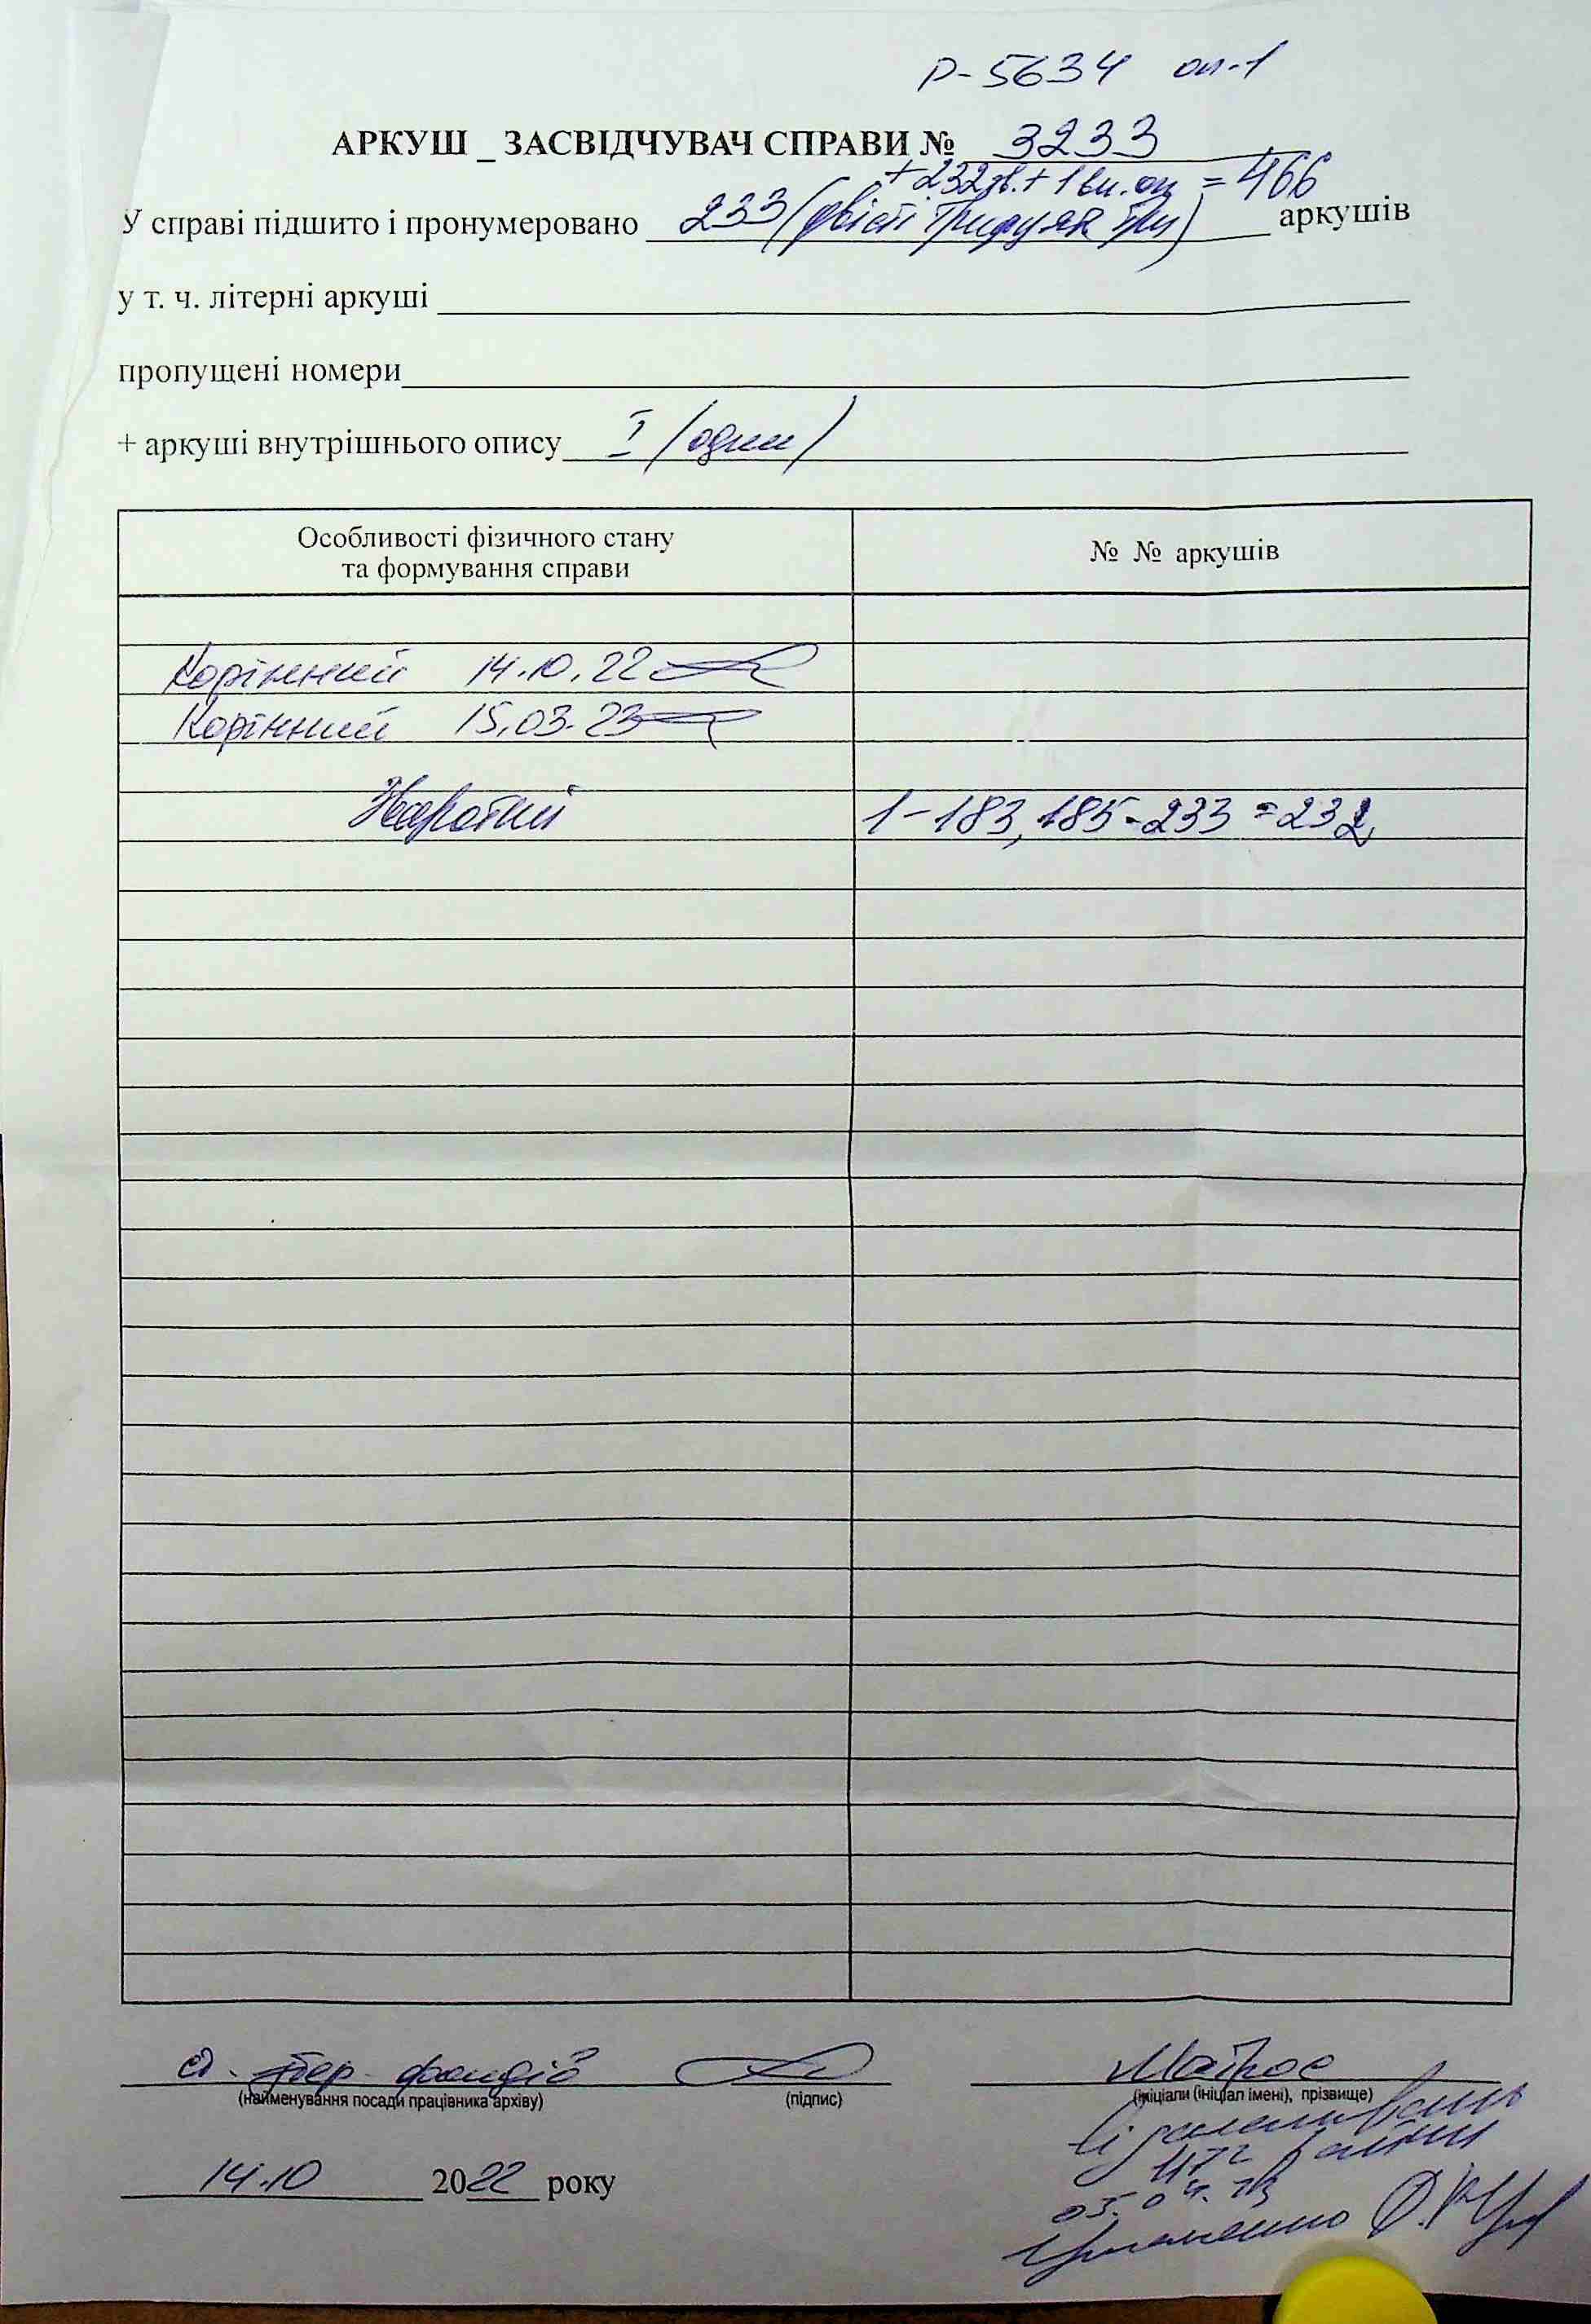 Р-5634 оп-1
АРКУШ _ ЗАСВІДЧУВАЧ СПРАВИ № 3233
+ 232 зв. + 1 вн. оп = 466
У справі підшито і пронумеровано 233 (двісті тридцять три) аркушів
у т. ч. літерні аркуші
пропущені номери
+ аркуші внутрішнього опису I (один)
Особливості фізичного стану
та формування справи
№ № аркушів
Корінний 14.10.22
Корінний 15.03.23
Зворотний 1-183, 185-233 = 232
фондів Матрос
(найменування посади працівника архіву) (підпис) (ініціали (ініціал імені), прізвище)
472 файли
14.10 2022 року
05.04.23